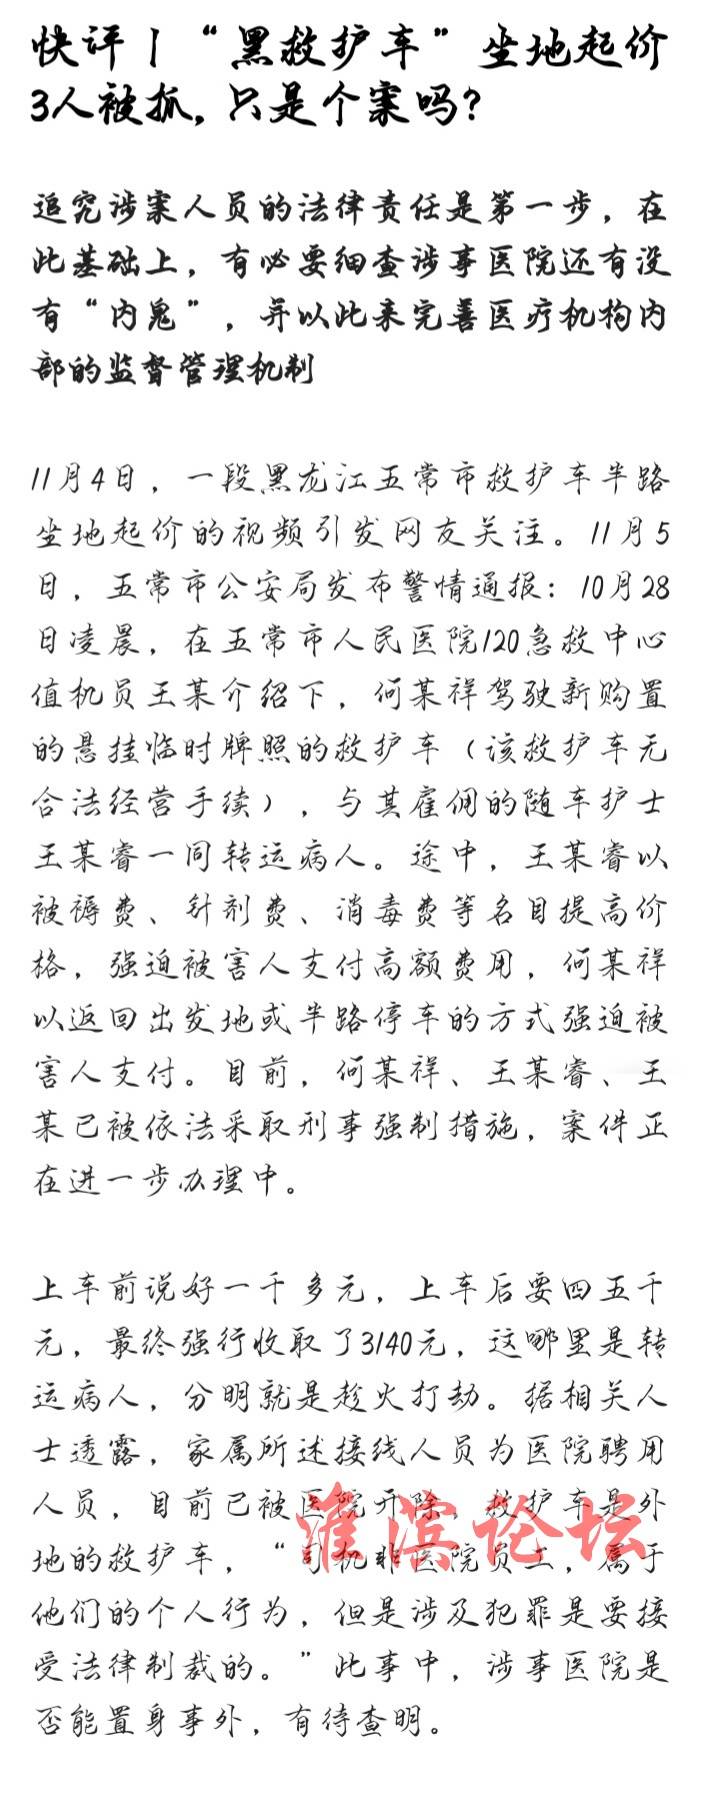 快评丨“黑救护车”坐地起价
3人被抓，只是个案吗？
追究涉案人员的法律责任是第一步，在
此基础上，有必要细查涉事医院还有没
有“内鬼”，并以此来完善医疗机构内
部的监督管理机制
11月4日，一段黑龙江五常市救护车半路
坐地起价的视频引发网友关注。11月5
日，五常市公安局发布警情通报：10月28
日凌晨，在五常市人民医院120急救中心
值机员王某介绍下，何某祥驾驶新购置
的悬挂临时牌照的救护车（该救护车无
合法经营手续），与其雇佣的随车护士
王某睿一同转运病人。途中，王某睿以
被褥费、针剂费、消毒费等名目提高价
格，强迫被害人支付高额费用，何某祥
以返回出发地或半路停车的方式强迫被
害人支付。目前，何某祥、王某睿、王
某已被依法采取刑事强制措施，案件正
在进一步办理中。
上车前说好一千多元，上车后要四五千
元，最终强行收取了3140元，这哪里是转
运病人，分明就是趁火打劫。据相关人
士透露，家属所述接线人员为医院聘用
人员，目前已被医院开除，救护车是外
地的救护车，“司机非医院员工，属于
他们的个人行为，但是涉及犯罪是要接
受法律制裁的。”此事中，涉事医院是
否能置身事外，有待查明。
淮滨论坛